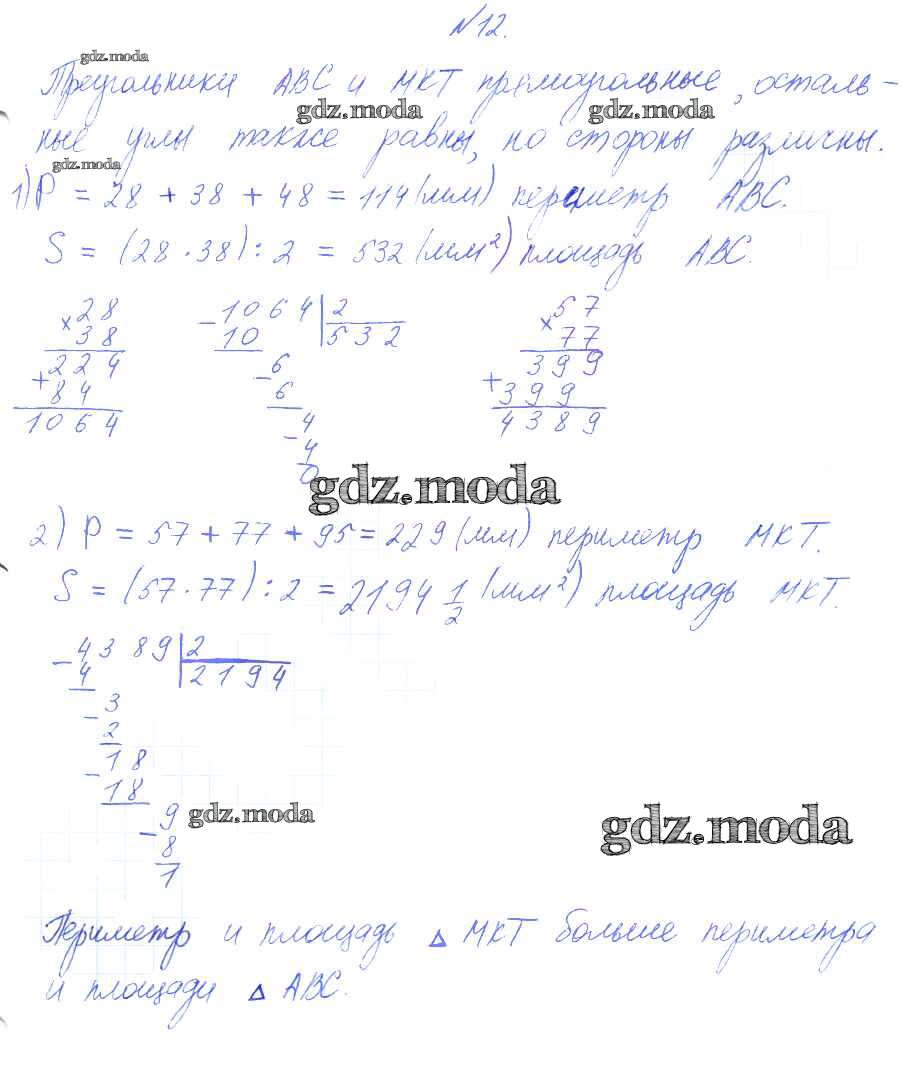 №12.
gdz.moda
Треугольники ABC и МКТ прямоугольные, осталь-
gdz.moda gdz.moda
ные углы также равны, но стороны различны.
gdz.moda
1) P = 28 + 38 + 48 = 114 (мм) периметр ABC.
S = (28 · 38) : 2 = 532 (мм²) площадь ABC.
× 28
38
224
+ 84
1064
- 1064 | 2
10 532
- 6
6
- 4
4
0
× 57
77
399
+ 399
4389
gdz.moda
2) P = 57 + 77 + 95 = 229 (мм) периметр МКТ.
S = (57 · 77) : 2 = 2194 1/2 (мм²) площадь МКТ.
- 4389 | 2
4 2194
- 3
2
- 18
18
- 9
8
1
gdz.moda
gdz.moda
Периметр и площадь Δ МКТ больше периметра
и площади Δ ABC.